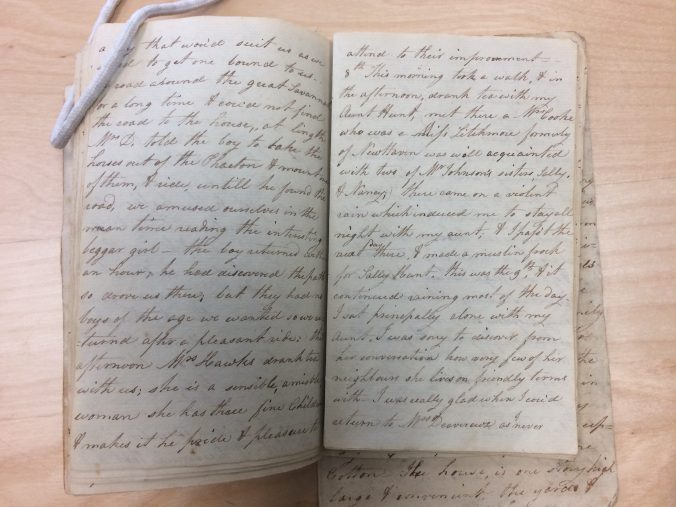 a boy that wou'd suit us as we
to get one bound to us.
road around the great Savannah
for a long time & cou'd not find
the road to the house, at length
Mrs D. told the boy to take the
horses out of the Phaeton & mount one
of them, & ride, untill he found the
road, we amused ourselves in the
mean time reading the interesting
beggar girl – the boy returned in half
an hour, he had discovered the path
so drove us there, but they had no
boys of the age we wanted so we re=
turn'd after a pleasant ride; this
afternoon Mrs Hawks drank tea
with us; she is a sensible, amiable
woman she has three fine Children
& makes it he pride & pleasure to
attend to their improvement –
8th This morning took a walk, & in
the afternoon, drank tea with my
Aunt Hunt, met there a Mrs Cooke
who was a miss Litchmore formerly
of New Haven was well acquainted
with two of Mr Johnson's sisters Sally,
& Nancy; there came on a violent
rain which induced me to stay all
night with my aunt, & I past the
next day there, & made a muslin frock
for Sally Hunt. this was the 9th, & it
continued raining most of the day.
I sat principally alone with my
Aunt. I was sorry to discover from
her conversation how very few of her
neighbours she lives on friendly terms
with – I was really glad when I cou'd
return to Mrs D as never
Cotton The house, is one story high
large & convenient the yard &